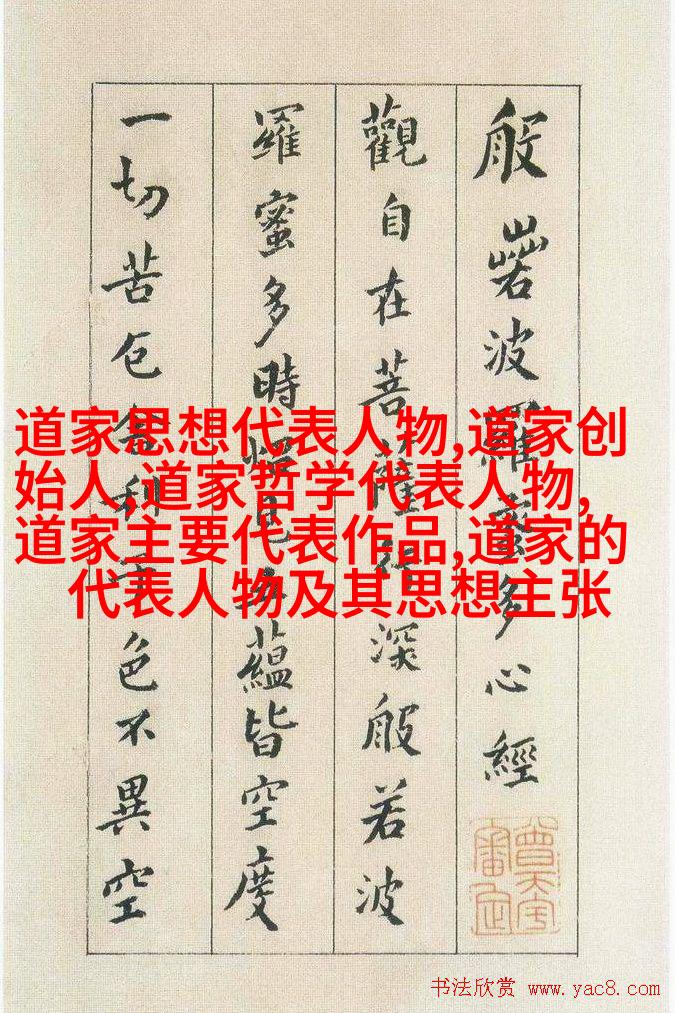 般若波羅蜜多心經
觀自在菩薩行深般若波
羅蜜多時照見五蘊皆空度
一切苦厄舍利子色不異空
道家思想代表人物,道家创
始人,道家哲学代表人物,
道家主要代表作品,道家的
代表人物及其思想主张
书法欣赏 www.yac8.com